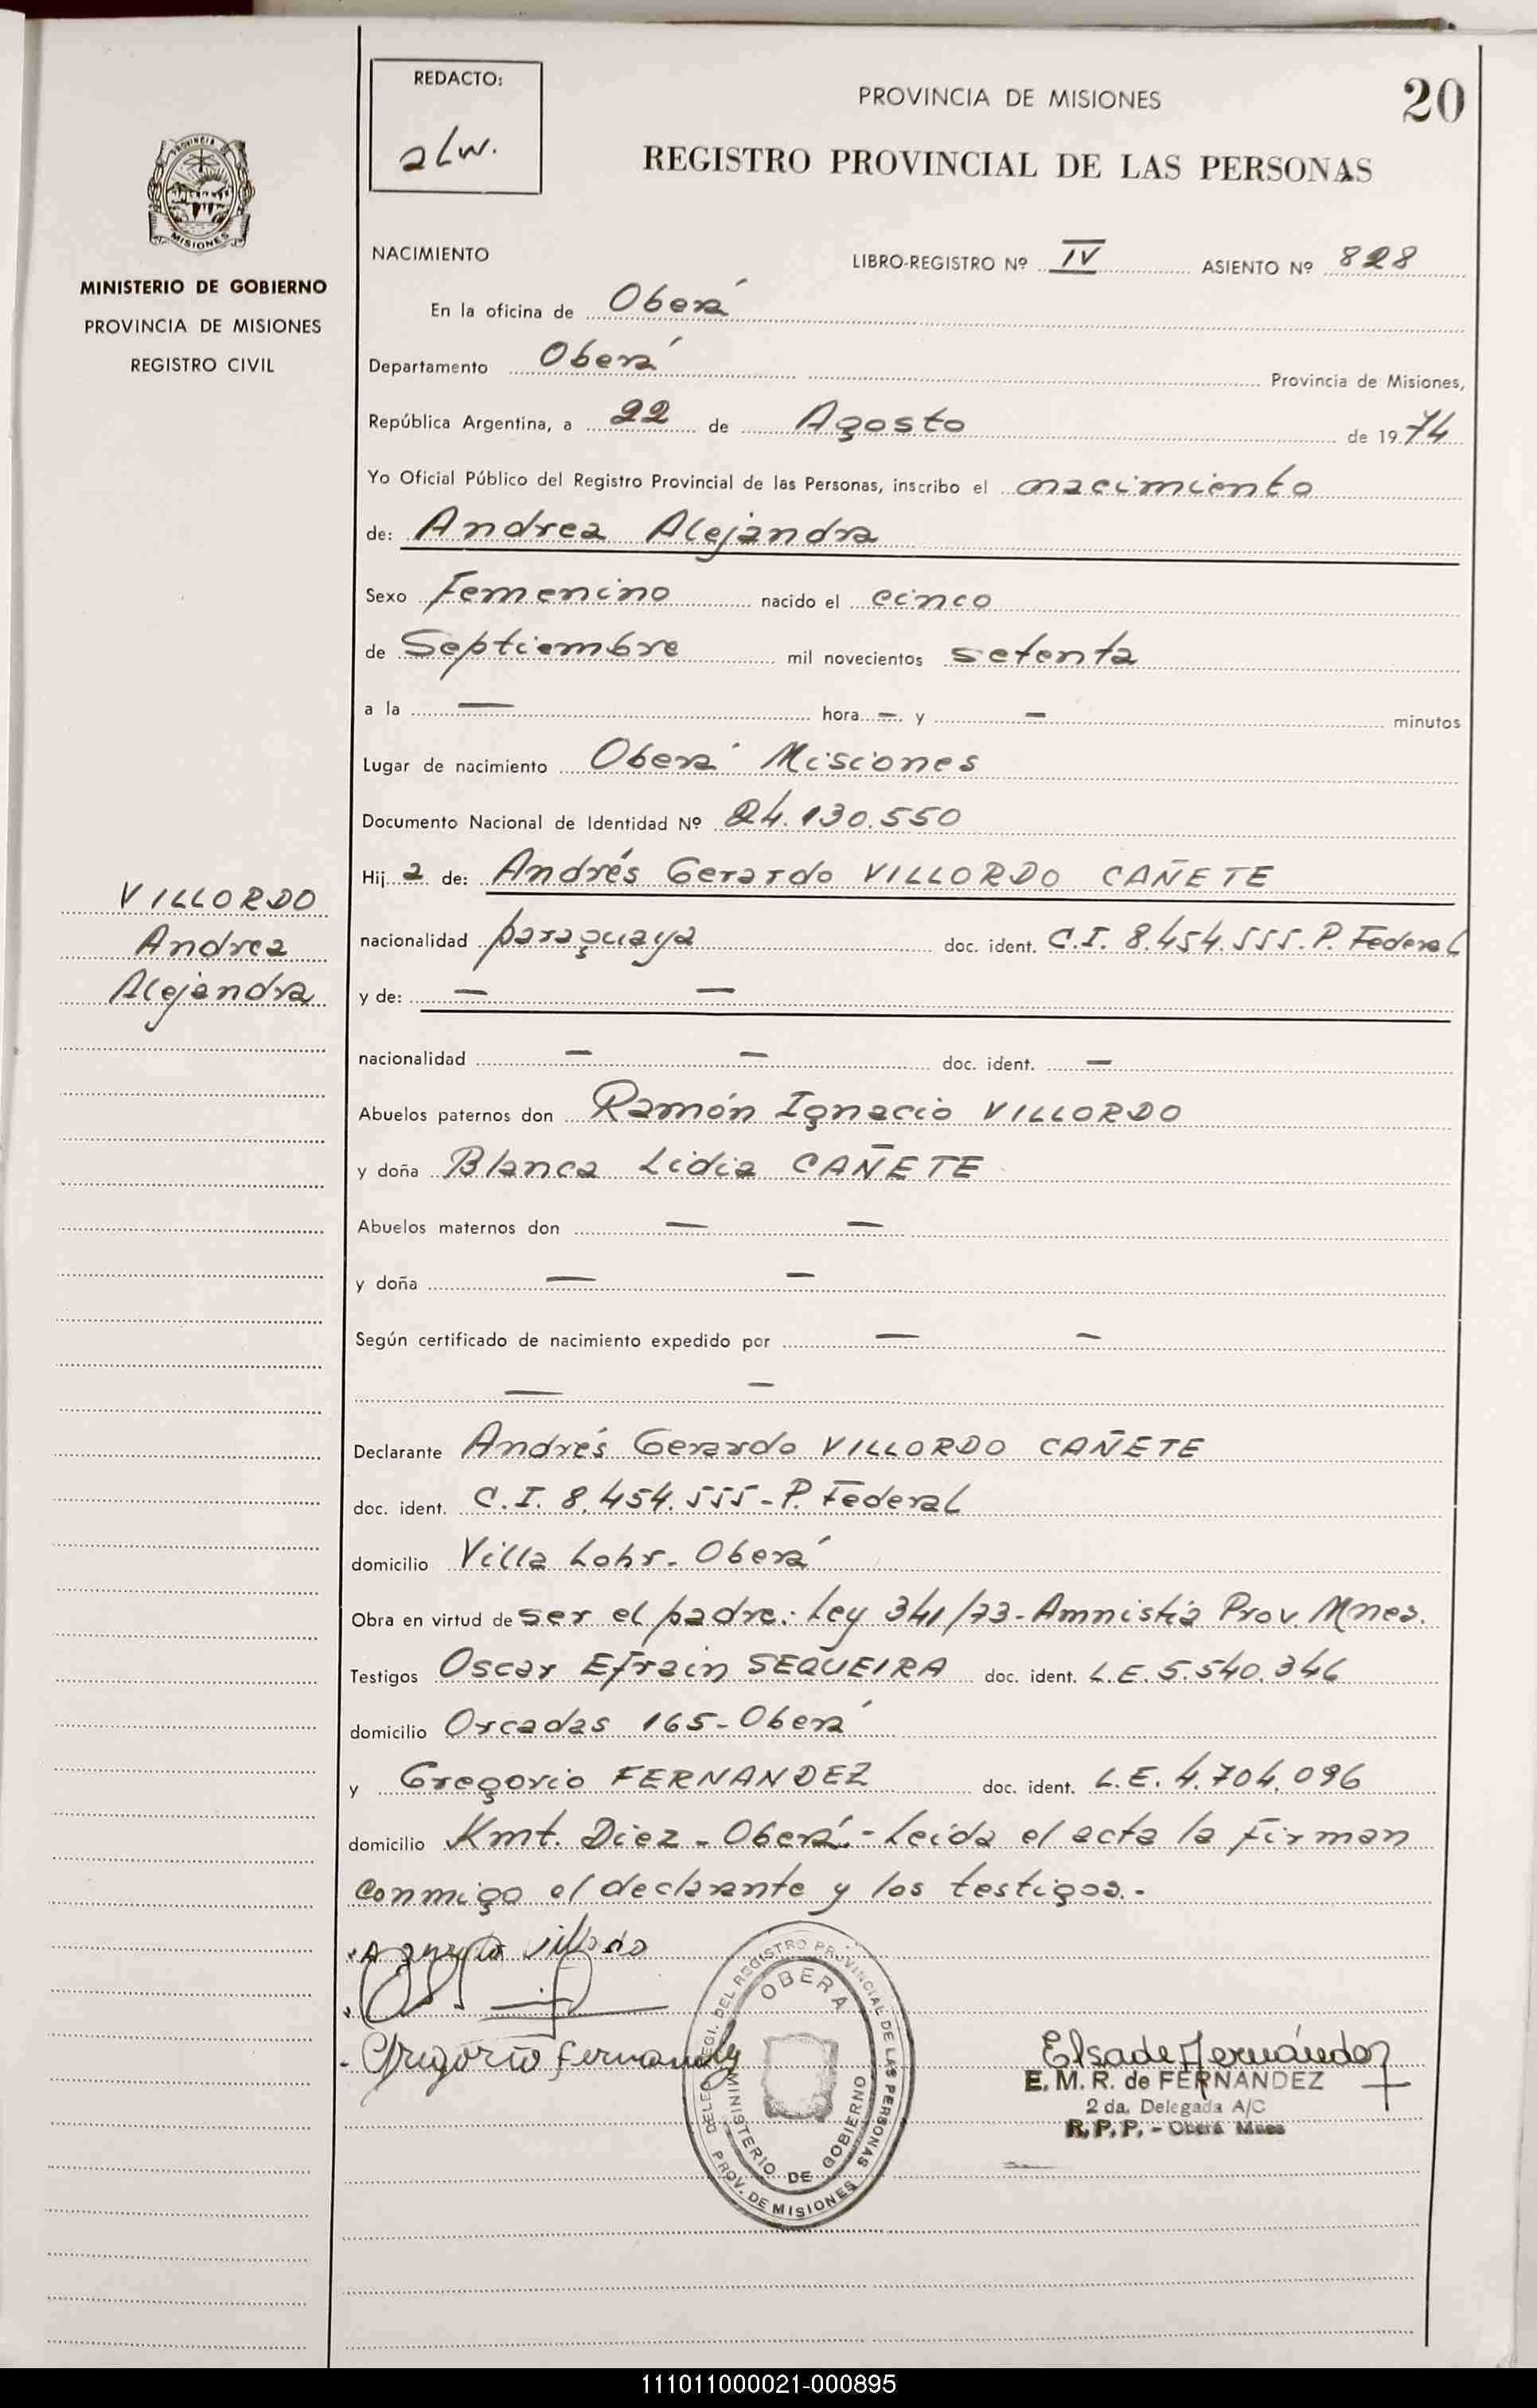 REDACTO:
alw.
PROVINCIA DE MISIONES
20
REGISTRO PROVINCIAL DE LAS PERSONAS
PROVINCIA
MISIONES
MINISTERIO DE GOBIERNO
PROVINCIA DE MISIONES
REGISTRO CIVIL
NACIMIENTO
LIBRO-REGISTRO Nº IV ASIENTO Nº 828
En la oficina de Oberá
Departamento Oberá Provincia de Misiones,
República Argentina, a 22 de Agosto de 1974
Yo Oficial Público del Registro Provincial de las Personas, inscribo el nacimiento
de: Andrea Alejandra
Sexo Femenino nacido el cinco
de Septiembre mil novecientos setenta
a la — hora — y — minutos
Lugar de nacimiento Oberá Misiones
Documento Nacional de Identidad Nº 24.130.550
Hij a de: Andrés Gerardo VILLORDO CAÑETE
nacionalidad paraguaya doc. ident. C.I. 8.454.555.P. Federal
y de: — —
nacionalidad — — doc. ident. —
Abuelos paternos don Ramón Ignacio VILLORDO
y doña Blanca Lidia CAÑETE
Abuelos maternos don — —
y doña — —
Según certificado de nacimiento expedido por — —
— —
Declarante Andrés Gerardo VILLORDO CAÑETE
doc. ident. C.I. 8.454.555-P. Federal
domicilio Villa Lohr - Oberá
Obra en virtud de ser el padre.- Ley 341/73- Amnistía Prov. Mnes.
Testigos Oscar Efrain SEQUEIRA doc. ident. L.E. 5.540.346
domicilio Orcadas 165 - Oberá
y Gregorio FERNANDEZ doc. ident. L.E. 4.704.096
domicilio Kmt. Diez - Oberá.- Leída el acta la firman
conmigo el declarante y los testigos.-
VILLORDO
Andrea
Alejandra
Gregorio Fernandez
DELEG. REGI. DEL REGISTRO PROVINCIAL DE LAS PERSONAS
OBERA
MINISTERIO DE GOBIERNO
PROV. DE MISIONES
Elsa de Fernández
E. M. R. de FERNANDEZ
2 da. Delegada A/C
R. P. P. - Oberá Mnes
111011000021-000895